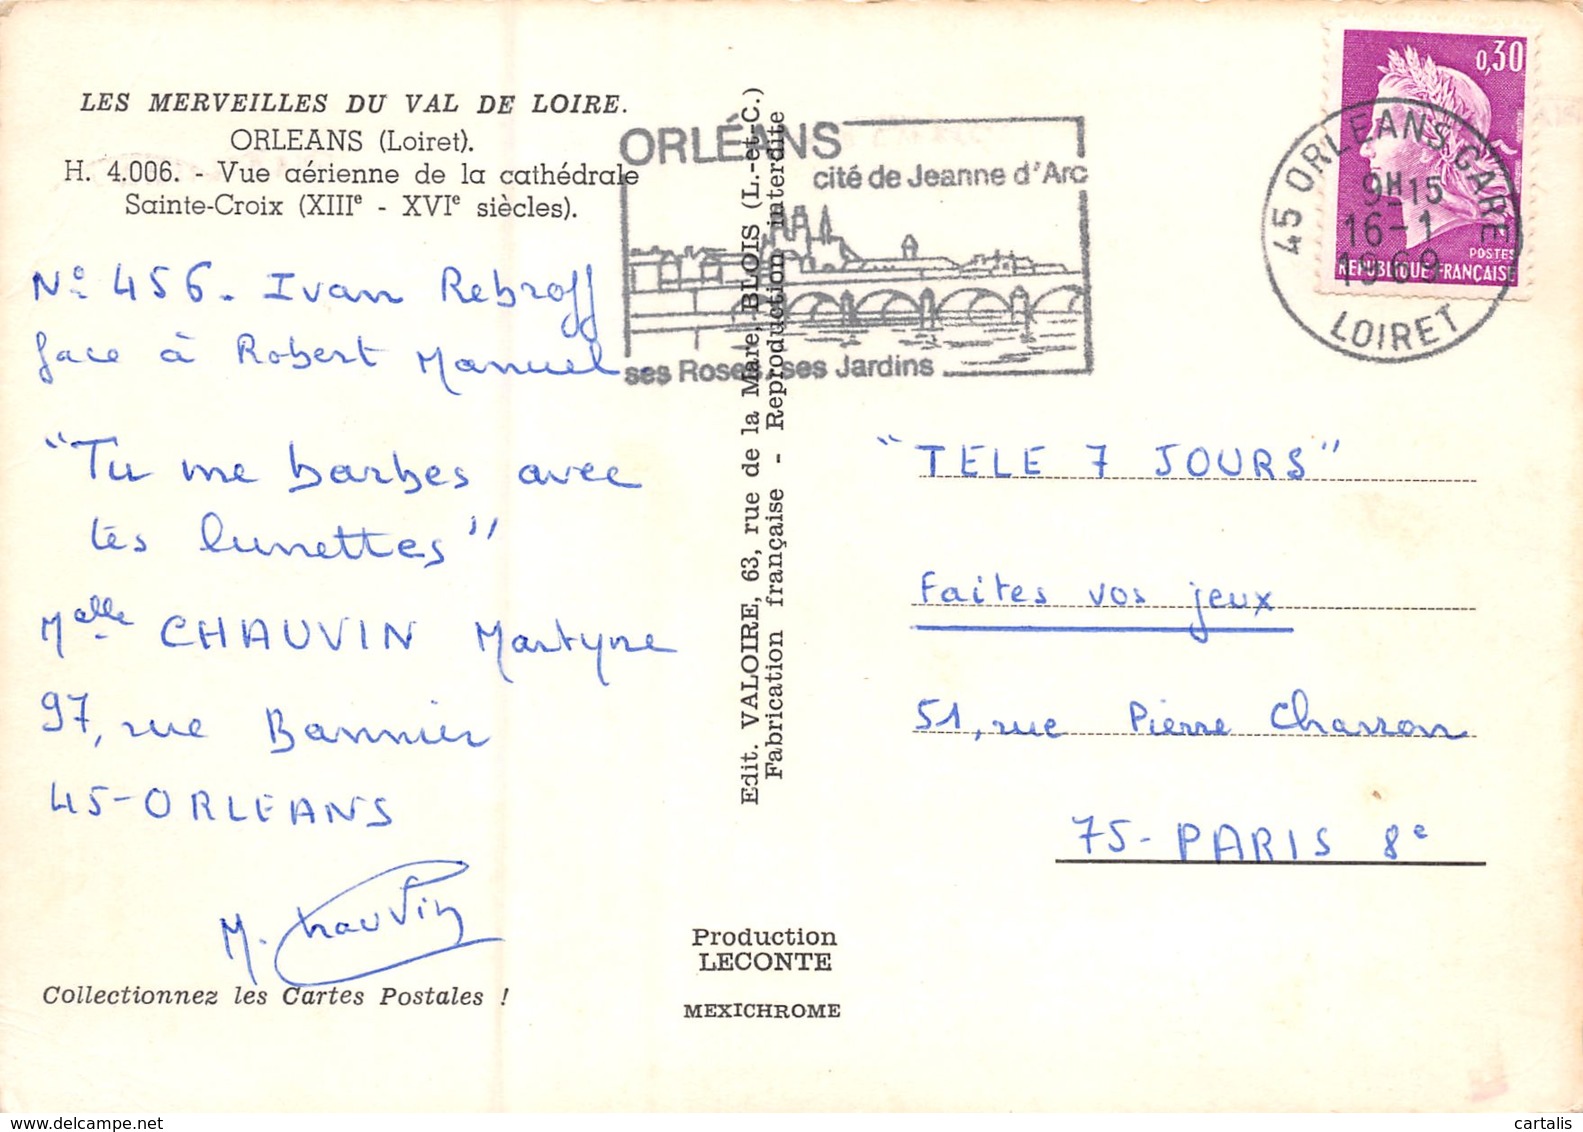 LES MERVEILLES DU VAL DE LOIRE.
ORLEANS (Loiret).
H. 4.006. - Vue aérienne de la cathédrale
Sainte-Croix (XIIIe - XVIe siècles).
N° 456. Ivan Rebroff
face à Robert Manuel.
"Tu me barbes avec
tes lunettes"
Melle CHAUVIN Martyne
97, rue Bannier
45-ORLEANS
M. Chauvin
Collectionnez les Cartes Postales !
ORLÉANS
cité de Jeanne d'Arc
ses Roses, ses Jardins
Edit. VALOIRE, 63, rue de la Mare, BLOIS (L.-et-C.)
Fabrication française - Reproduction interdite
Production
LECONTE
MEXICHROME
0,30
POSTES
REPUBLIQUE FRANÇAISE
45 ORLEANS GARE
9H15
16-1
1969
LOIRET
"TELE 7 JOURS"
Faites vos jeux
51, rue Pierre Charron
75-PARIS 8e
cartalis